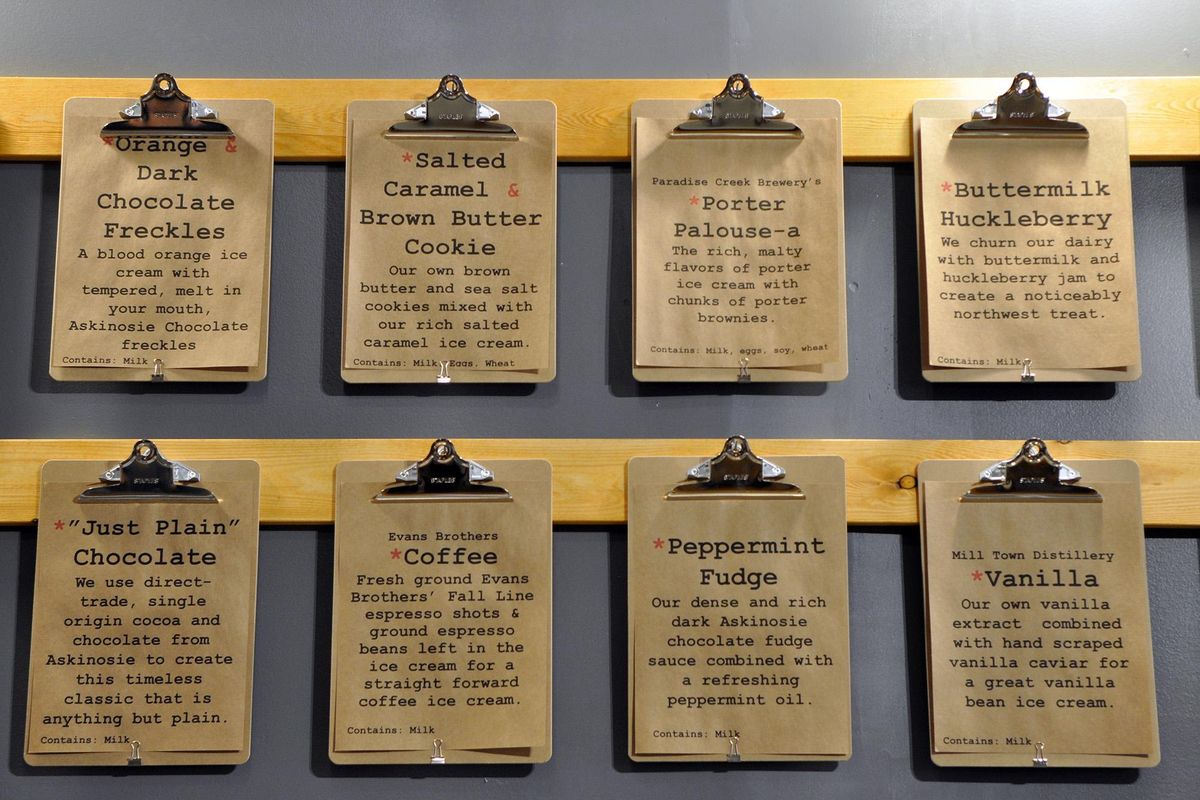 *Orange &
Dark
Chocolate
Freckles
A blood orange ice
cream with
tempered, melt in
your mouth,
Askinosie Chocolate
freckles
Contains: Milk
*Salted
Caramel &
Brown Butter
Cookie
Our own brown
butter and sea salt
cookies mixed with
our rich salted
caramel ice cream.
Contains: Milk, Eggs, Wheat
Paradise Creek Brewery's
*Porter
Palouse-a
The rich, malty
flavors of porter
ice cream with
chunks of porter
brownies.
Contains: Milk, eggs, soy, wheat
*Buttermilk
Huckleberry
We churn our dairy
with buttermilk and
huckleberry jam to
create a noticeably
northwest treat.
Contains: Milk
*"Just Plain"
Chocolate
We use direct-
trade, single
origin cocoa and
chocolate from
Askinosie to create
this timeless
classic that is
anything but plain.
Contains: Milk
Evans Brothers
*Coffee
Fresh ground Evans
Brothers' Fall Line
espresso shots &
ground espresso
beans left in the
ice cream for a
straight forward
coffee ice cream.
Contains: Milk
*Peppermint
Fudge
Our dense and rich
dark Askinosie
chocolate fudge
sauce combined with
a refreshing
peppermint oil.
Contains: Milk
Mill Town Distillery
*Vanilla
Our own vanilla
extract combined
with hand scraped
vanilla caviar for
a great vanilla
bean ice cream.
Contains: Milk